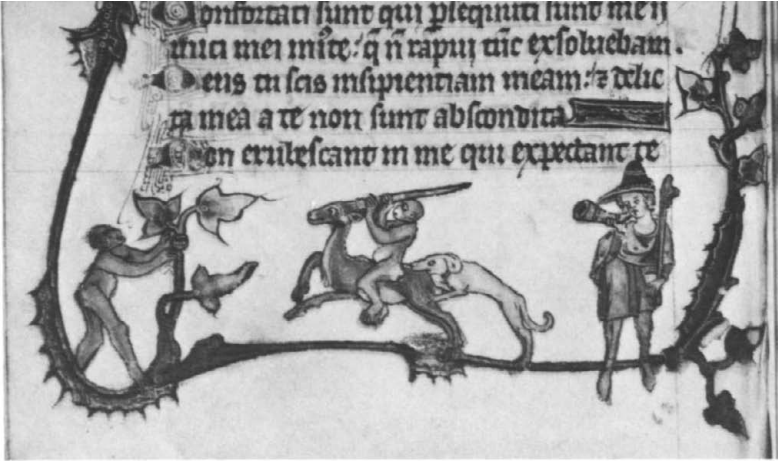 Confortati sunt qui ꝑsequuti sunt me in
imici mei iniuste: q̄ n̄ rapui tūc exsoluebam.
Deus tu scis insipientiam meam: ⁊ delic
ta mea a te non sunt abscondita
Non erubescant in me qui expectant te